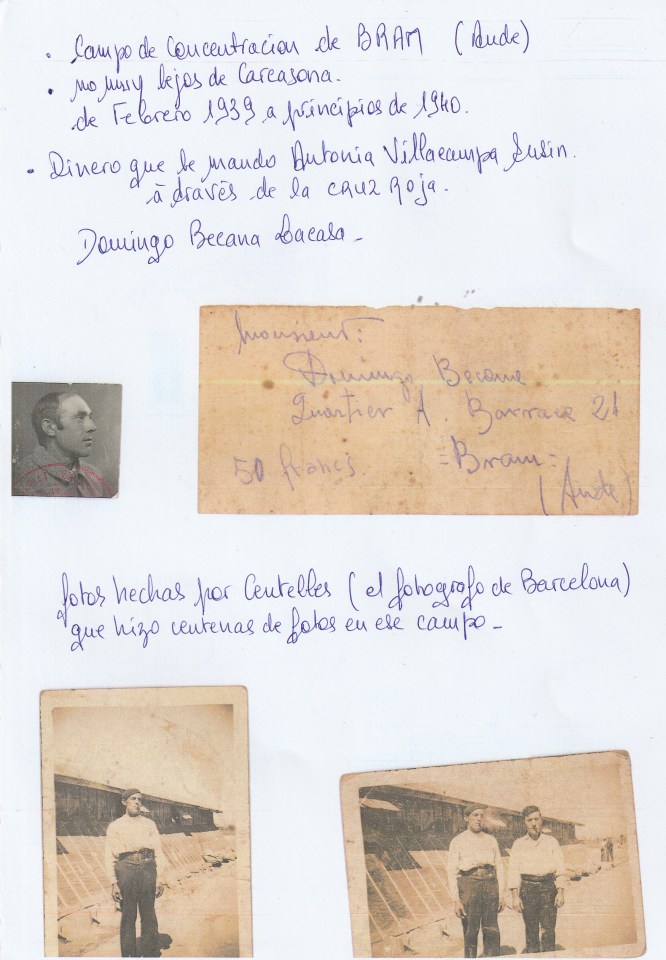 . Campo de Concentracion de BRAM (Aude)
. no muy lejos de Carcasona.
de Febrero 1939 a principios de 1940.
. Dinero que le mando Antonia Villacampa Susin.
à través de la CRUZ ROJA.
Domingo Becana Lacasa_
Monsieur:
Domingo Becana
Quartier A. Barraca 21
50 francs. =Bram=
(Aude)
fotos hechas por Centelles (el fotografo de Barcelona)
que hizo centenas de fotos en ese campo_